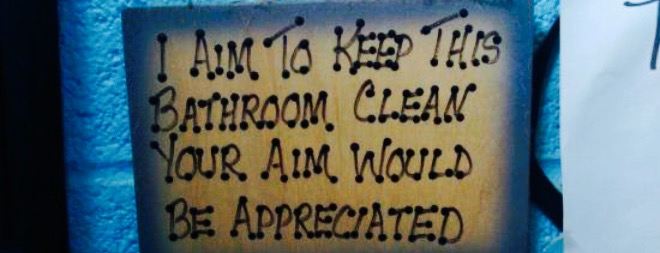 I AIM TO KEEP THIS
BATHROOM CLEAN
YOUR AIM WOULD
BE APPRECIATED